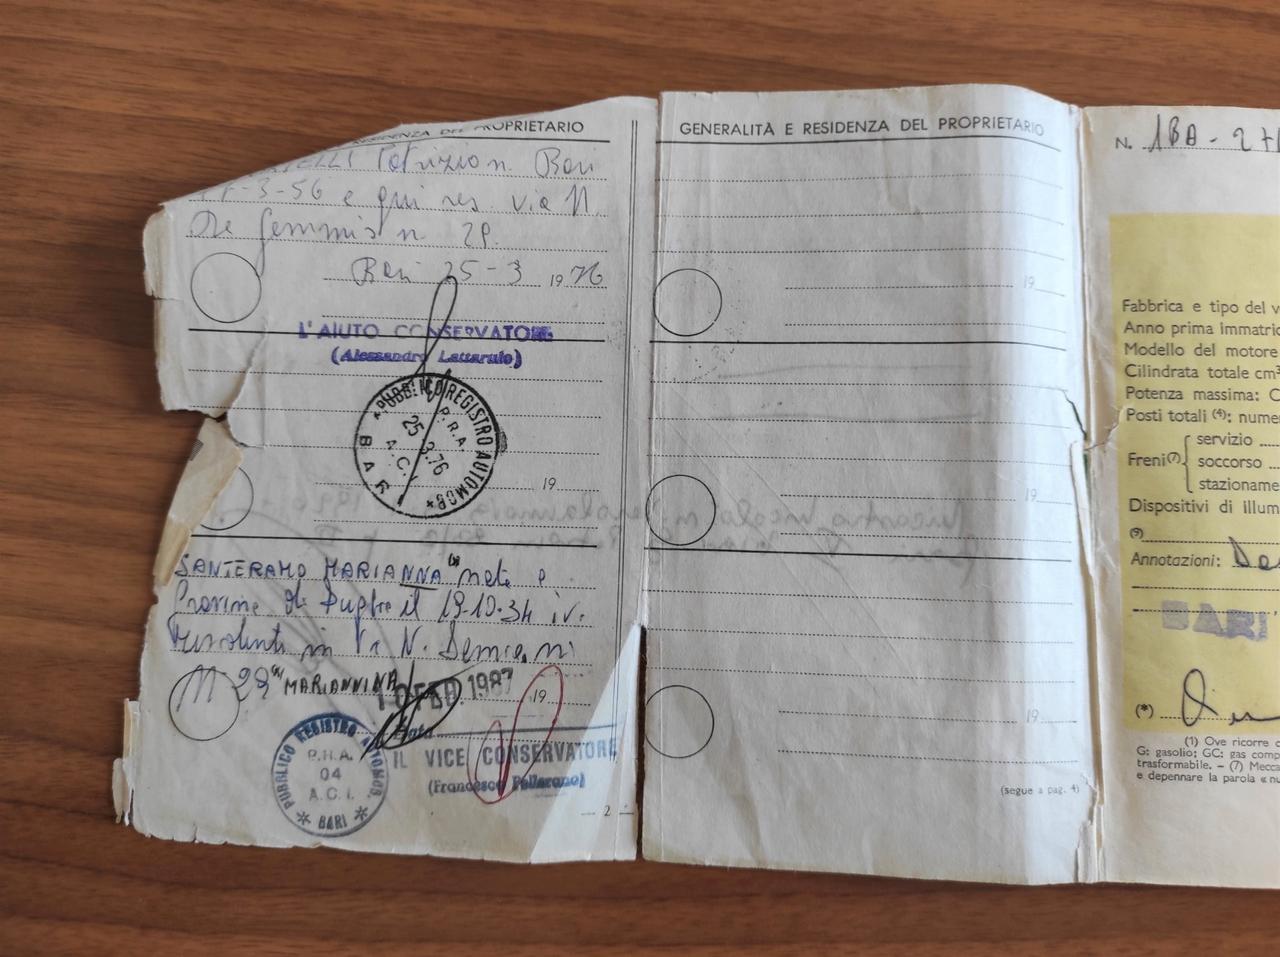 RESIDENZA DEL PROPRIETARIO
ELLI Patrizio n. Bari
-3-56 e qui res. via N.
De Gemmis n. 29.
Bari 25-3 1976
L'AIUTO CONSERVATORE
(Alessandro Lattarulo)
PUBBLICO REGISTRO AUTOMOB.
P.R.A.
25.3.76
A.C.I.
BARI
19
SANTERAMO MARIANNA
il 19-10-34 iv.
in Via N.
N 29 MARIANNINA
10 FEB. 1987
19
IL VICE CONSERVATORE
(Francesco Pellerano)
PUBBLICO REGISTRO AUTOMOB.
P.R.A.
04
A.C.I.
BARI
— 2 —
GENERALITÀ E RESIDENZA DEL PROPRIETARIO
19
19
19
(segue a pag. 4)
N. 1BA - 27
Fabbrica e tipo del v
Anno prima immatric
Modello del motore
Cilindrata totale cm³
Potenza massima: C
Posti totali (4): nume
Freni(7)
servizio
soccorso
stazioname
Dispositivi di illum
(9)
Annotazioni:
BARI
(*)
(1) Ove ricorre c
G: gasolio; GC: gas comp
trasformabile. – (7) Mecca
e depennare la parola « nu